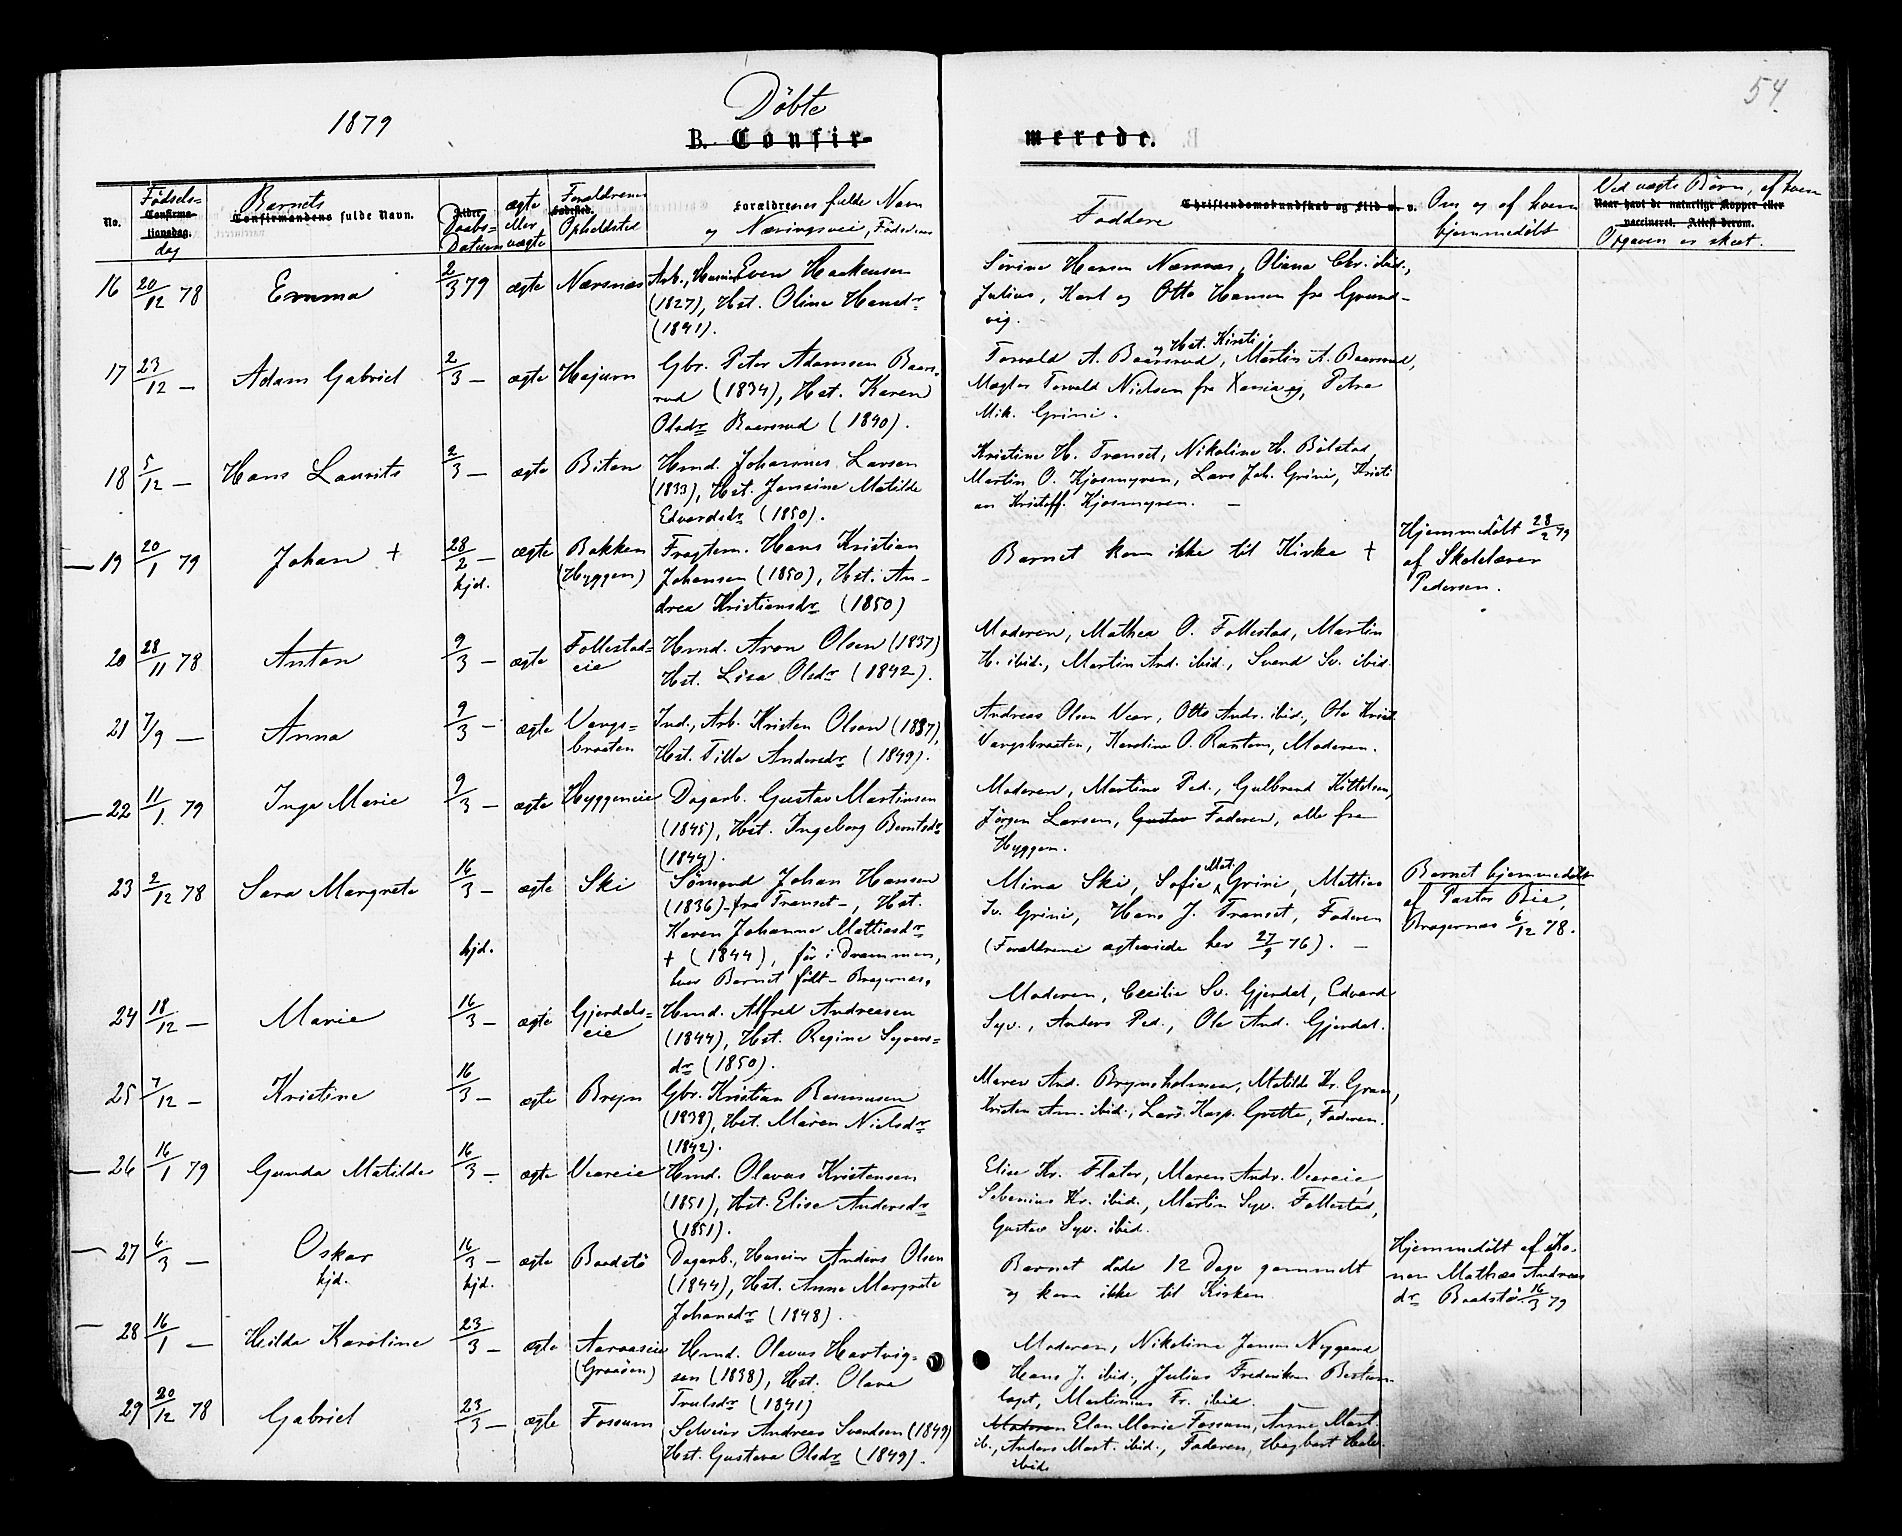 54
1879
Döbte
B. Confir-
merede.
No.
Fødsels-
Confirma-
tionsdag.
dag
Barnets
Confirmandens fulde Navn.
Alder.
Daabs-
Datum
ægte
eller
uægte
Forældrenes
Fødested.
Opholdsted
Forældrenes fulde Navn
og Næringsvei, Fødselsaar
Faddere
Christendomskundskab og Flid m. v.
Om og af hvem
hjemmedøbt
Ved uægte Børn, af hvem
Naar havt de naturlige Kopper eller
vaccineret. Attest derom.
Opgaven er skeet.
16 20/12 78 Emma 2/3 79 ægte Nærsnæs Arb., Huseier Even Haakensen
(1827), Hst. Oline Hansdr
(1841).
Sörine Hansen Nærsnæs, Oliane Chr. ibid.,
Julius, Karl og Otto Hansen fra Grund-
vig.
17 23/12 — Adam Gabriel 2/3 — ægte Højum Gbr. Peter Adamsen Baars-
rud (1834), Hst. Karen
Olsdr Baarsrud (1840).
og Hst. Kirsti,
Torvald A. Baarsrud, Martin A. Baarsrud,
Mægler Torvald Nielsen fra Xania og Petra
Mik. Grini.
18 5/12 — Hans Laurits 2/3 — ægte Biten Hmd. Johannes Larsen
(1833), Hst. Jensine Matilde
Edvardsdr (1850).
Kristine H. Transet, Nikoline H. Bölstad,
Martin O. Kjosmyren, Lars Joh. Grini, Kristi
an Kristoff. Kjosmyren. —
19 20/1 79 Johan + 28/2 — hjd. ægte Bakken
(Hyggen)
Fragtem. Hans Kristian
Johansen (1850), Hst. An-
drea Kristiansdr (1850)
Barnet kom ikke til Kirke +
Hjemmedöbt 28/2 79
af Skolelærer
Pedersen.
20 28/11 78 Anton 9/3 — ægte Follestad-
eie
Hmd. Aron Olsen (1837)
Hst. Lisa Olsdr (1842).
Moderen, Mathea O. Follestad, Martin
H. ibid., Martin And. ibid., Svend Sv. ibid.
21 7/9 — Anna 9/3 — ægte Vangs-
braaten
Ind., Arb. Kristen Olsen (1837),
Hst. Tilla Andersdr (1849).
Andreas Olsen Vear, Otto Andr. ibid., Ole Krist.
Vangsbraaten, Karoline O. Rustom, Moderen.
22 11/1 79 Inga Marie 9/3 — ægte Hyggeneie Dagarb. Gustav Martinsen
(1845), Hst. Ingeborg Berntsdr
(1844).
Moderen, Martine Ped., Gulbrand Kittelsen,
Jörgen Larsen, Gustav Faderen, alle fra
Hyggen.
23 2/12 78 Sara Margrete 16/3 — hjd. ægte Ski Sömand Johan Hansen
(1836) – fra Transet –, Hst.
Karen Johanne Mattiasdr
+ (1844), för i Drammen,
hvor Barnet födt – Bragernæs.
Mina Ski, Sofie Mat. Grini, Mattias
Sv. Grini, Hans J. Transet, Faderen
(Forældrene ægteviede her 27/9 76). —
Barnet hjemmedöbt
af Pastor Bie,
Bragernæs 6/12 78.
24 18/12 — Marie 16/3 — ægte Gjerdals-
eie
Hmd. Alfred Andreasen
(1844), Hst. Regine Syvers-
dr (1850).
Moderen, Cecilie Sv. Gjerdal, Edvard
Syv., Anders Ped., Ole And. Gjerdal.
25 7/12 — Kristine 16/3 — ægte Bryn Gbr. Kristian Rasmusen
(1838), Hst. Maren Nielsdr
(1842).
Maren And. Brynsholmen, Matilde Kr. Gran,
Kristen Am. ibid., Lars Kasp. Grette, Faderen.
26 16/1 79 Gunda Matilde 16/3 — ægte Veareie Hmd. Olavus Kristensen
(1851), Hst. Elise Andersdr
(1851).
Elise Kr. Flater, Maren Andr. Veareie,
Sebenius Kr. ibid., Martin Syv. Follestad,
Gustav Syv. ibid.
27 6/3 — Oskar
hjd.
16/3 — hjd. ægte Baadstö Dagarb., Huseier Anders Olsen
(1844), Hst. Anne Margrete
Johansdr (1848).
Barnet döde 12 Dage gammelt
og kom ikke til Kirken
Hjemmedöbt af Ko-
nen Mathea Andreas
dr Baadstö 16/3 79
28 16/1 — Hilda Karoline 23/3 — ægte Aaraaseie
(Graaöen)
Hmd. Olavus Hartvig-
sen (1838), Hst. Olava
Trulsdr (1841)
Moderen, Nikoline Jensen Nygaard,
Hans J. ibid., Julius Frederiksen
Martinius Fr. ibid.
29 20/12 78 Gabriel 23/3 — ægte Fossum Selveier Andreas Svendsen (1849)
Hst. Gustava Olsdr (1849).
Moderen Elen Marie Fossum, Anne Mart.
ib., Anders Mart. ibid., Faderen, Hagbart
ibid.